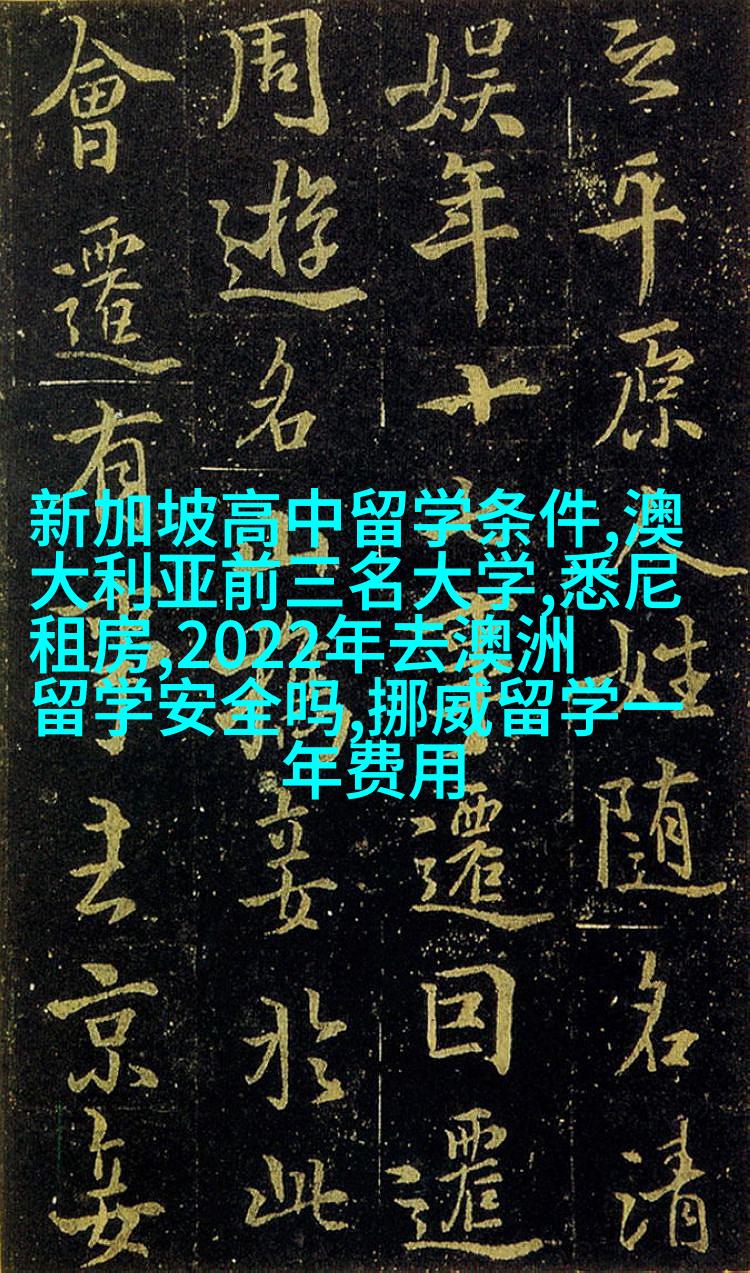 新加坡高中留学条件,澳
大利亚前三名大学,悉尼
租房,2022年去澳洲
留学安全吗,挪威留学一
年费用
平原人姓随名清
娱年十遷回遷
周遊名山妾於此
會遷有京妾